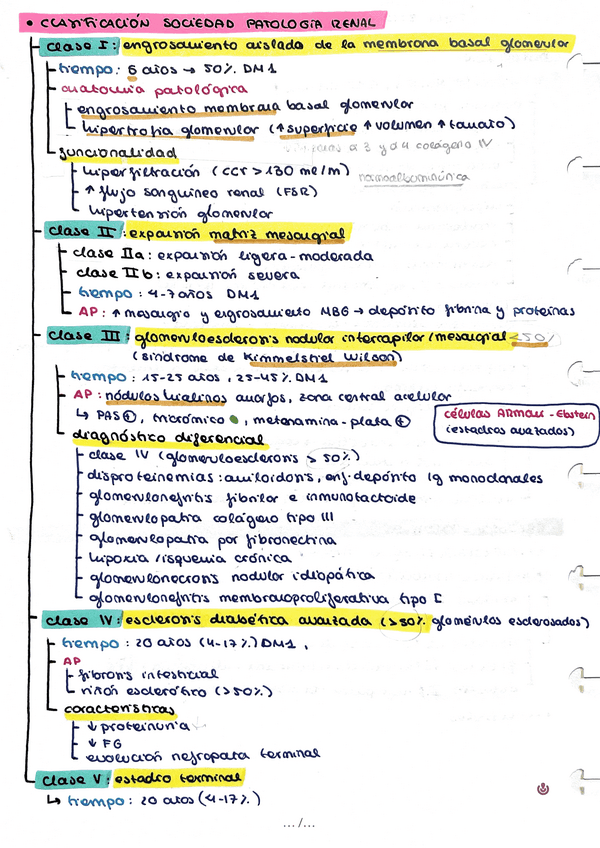 • CLASIFICACIÓN SOCIEDAD PATOLOGÍA RENAL
clase I: engrosamiento aislado de la membrana basal glomerular
tiempo: 5 años → 50% DM1
anatomía patológica
engrosamiento membrana basal glomerular
hipertrofia glomerular (↑ superficie ↑ volumen ↑ tamaño)
α 3 y α 4 colágeno IV
funcionalidad
hiperfiltración (CCr > 130 ml/m)
normoalbuminúrica
↑ flujo sanguíneo renal (FSR)
hipertensión glomerular
clase II: expansión matriz mesangial
clase IIa: expansión ligera-moderada
clase IIb: expansión severa
tiempo: 4-7 años DM1
AP: ↑ mesangio y engrosamiento MBG → depósito fibrina y proteínas
clase III: glomeruloesclerosis nodular intercapilar/mesangial <50%
(síndrome de Kimmelstiel Wilson)
tiempo: 15-25 años, 25-45% DM1
AP: nódulos hialinos amorfos, zona central acelular
↳ PAS⊕, tricrómico ●, metenamina-plata ⊕
células Armani-Ebstein
(estadios avanzados)
diagnóstico diferencial
clase IV (glomeruloesclerosis > 50%)
disproteinemias: amiloidosis, enf. depósito Ig monoclonales
glomerulonefritis fibrilar e inmunotactoide
glomerulopatía colágeno tipo III
glomerulopatía por fibronectina
hipoxia/isquemia crónica
glomerulonecrosis nodular idiopática
glomerulonefritis membranoproliferativa tipo I
clase IV: esclerosis diabética avanzada (>50% glomérulos esclerosados)
tiempo: 20 años (4-17%) DM1,
AP
fibrosis intersticial
riñón esclerótico (>50%)
características
↓ proteinuria ↓
↓ FG
evolución nefropatía terminal
clase V: estadio terminal
↳ tiempo: 20 años (4-17%)
.../...